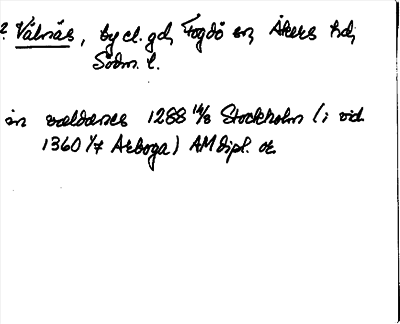 ? Valnäs, by el. gd, Fogdö sn, Åkers hd,
Södm. l.
in valdanes 1288 14/8 Stockholm (i vid.
1360 1/7 Arboga) AM dipl. or.